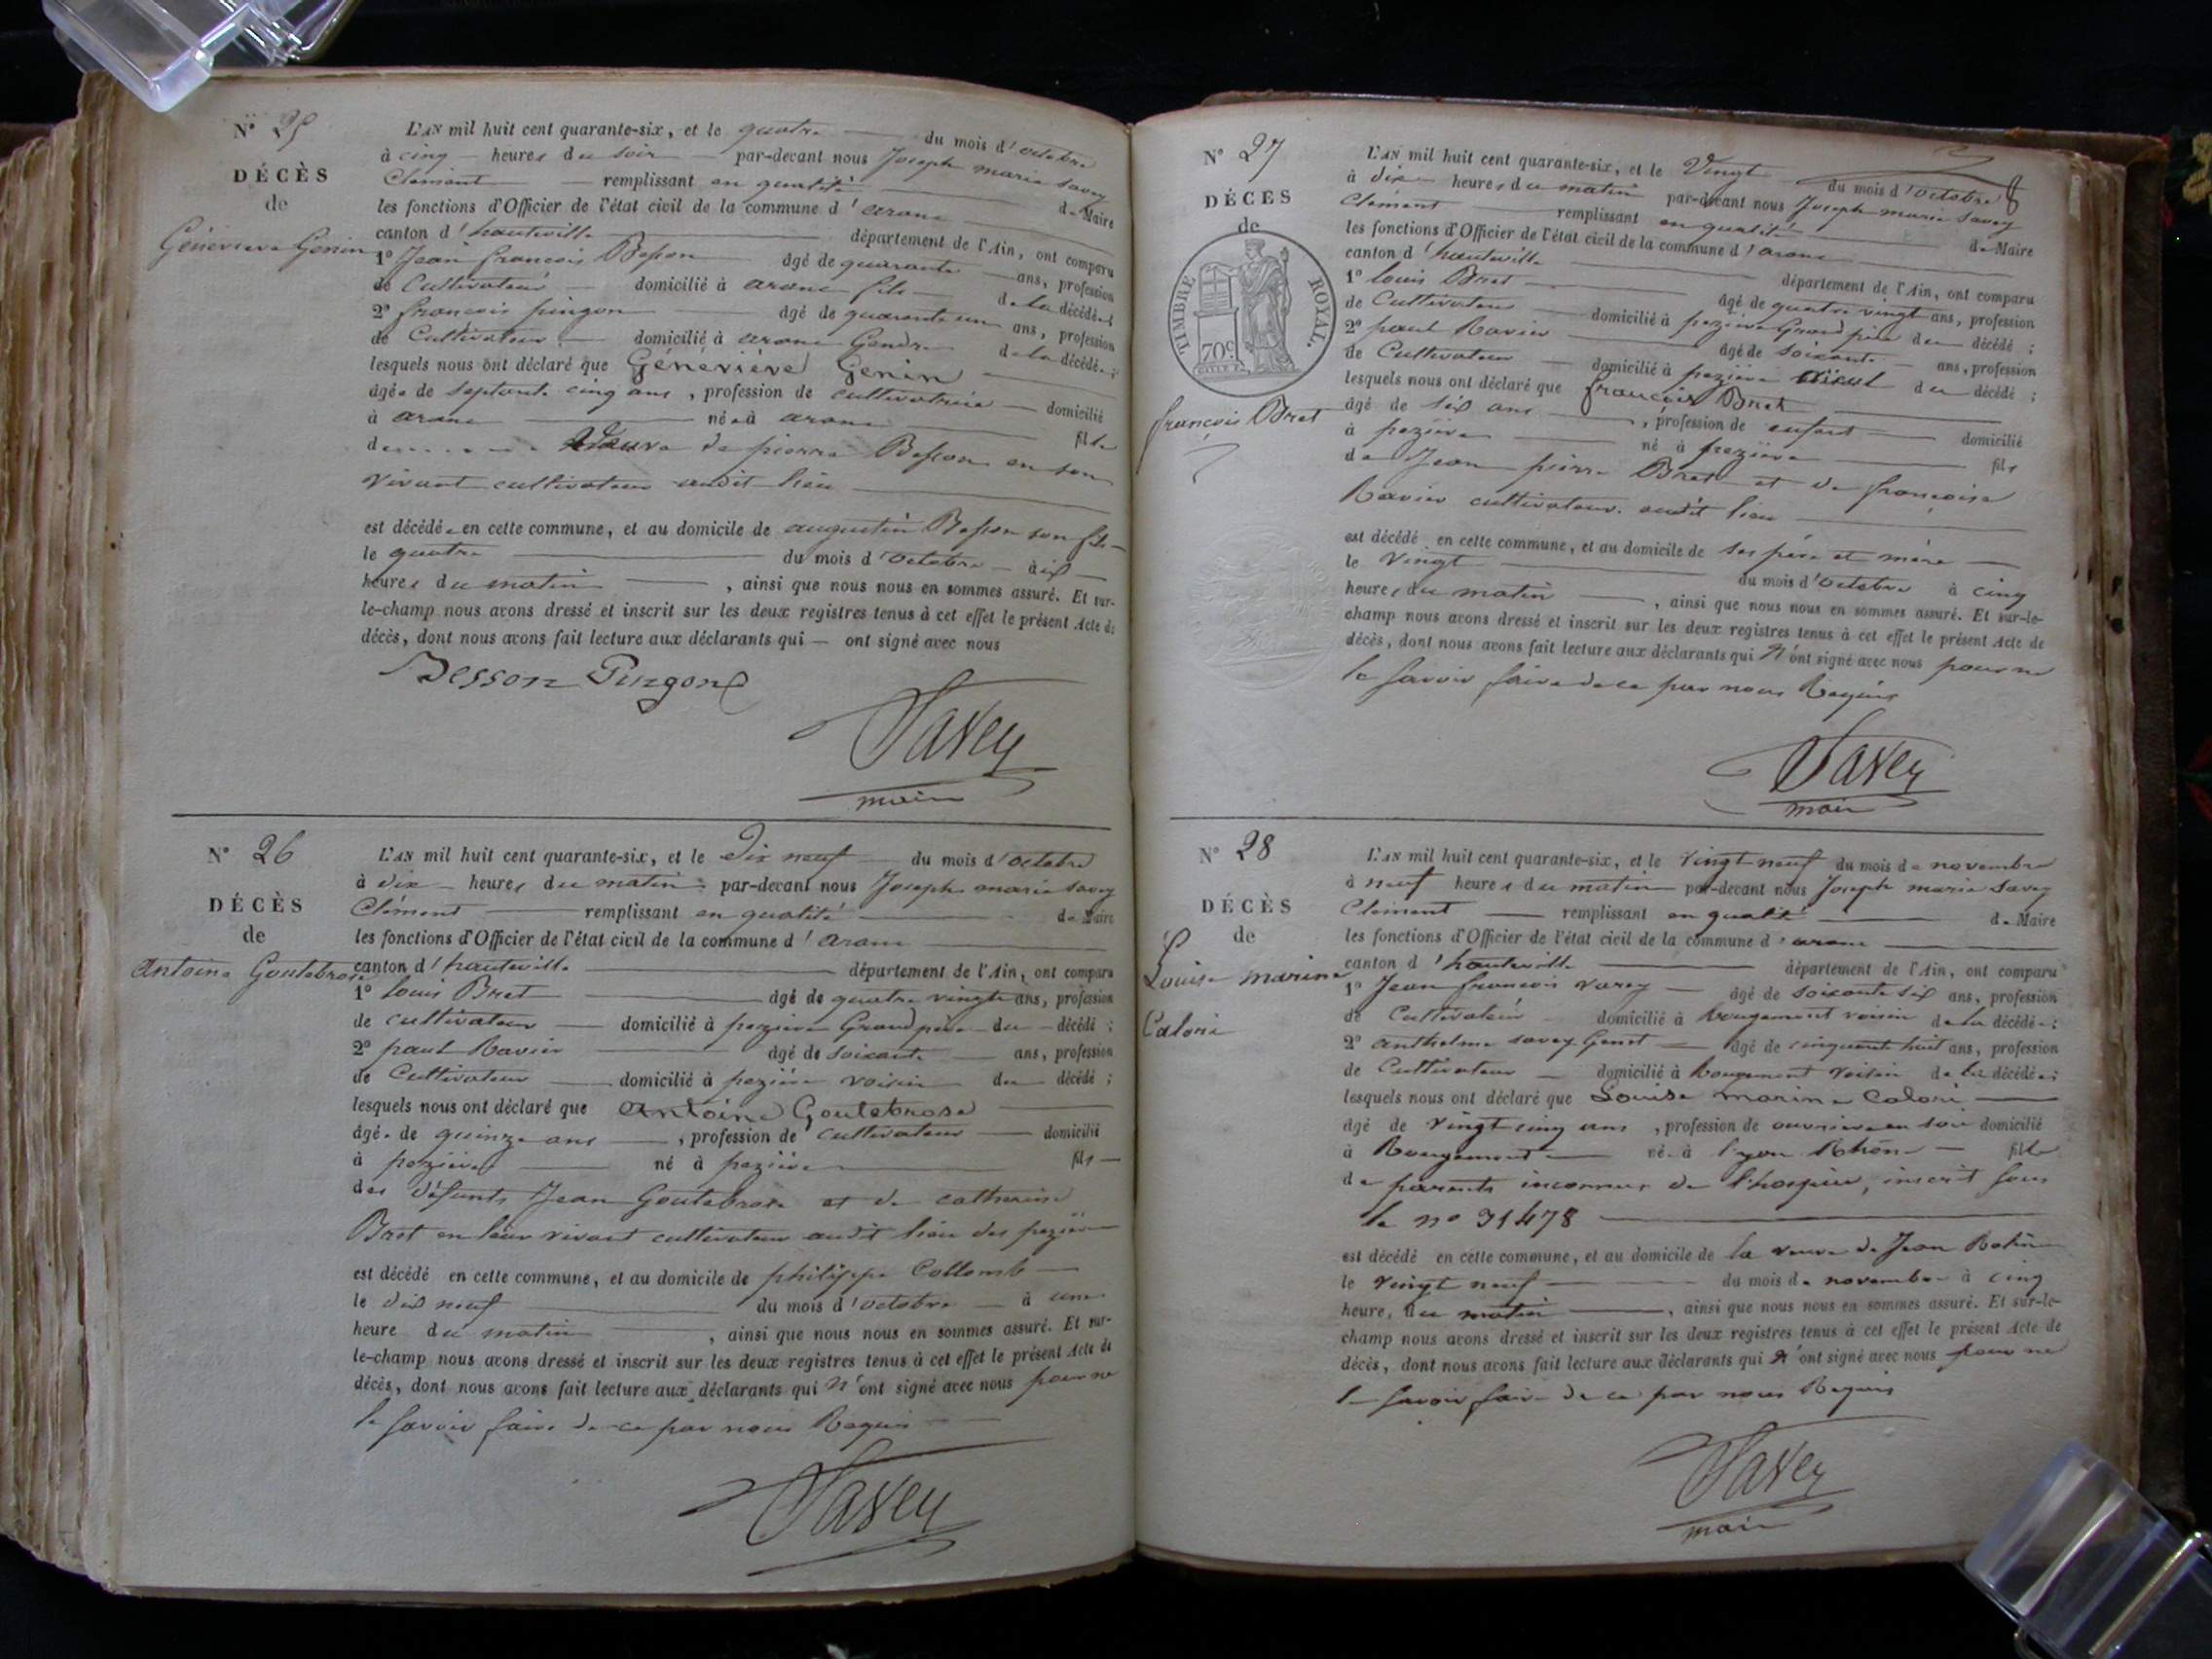 N° 25
DÉCÈS
de
Généviève Genin
L'AN mil huit cent quarante-six, et le quatre du mois d'octobre
à cinq heures du soir par-devant nous Joseph marie Savey
Clément remplissant en qualité de Maire
les fonctions d'Officier de l'état civil de la commune d'arane
canton d'hauteville département de l'Ain, ont comparu
1° Jean françois Besson âgé de quarante ans, profession
de Cultivateur domicilié à arane fils de la décédée ;
2° françois pingon âgé de quarante un ans, profession
de Cultivateur domicilié à arane Gendre de la décédée ;
lesquels nous ont déclaré que Généviève Genin
âgée de septante cinq ans, profession de cultivatrice domicilié
à arane née à arane fille
de veuve de pierre Besson en son
vivant cultivateur audit lieu
est décédée en cette commune, et au domicile de augustin Besson son fils
le quatre du mois d'octobre à six
heures du matin, ainsi que nous nous en sommes assuré. Et sur-
le-champ nous avons dressé et inscrit sur les deux registres tenus à cet effet le présent Acte de
décès, dont nous avons fait lecture aux déclarants qui ont signé avec nous
Besson Pingon
Savey
maire
N° 26
DÉCÈS
de
Antoine Goutebrose
L'AN mil huit cent quarante-six, et le Dix neuf du mois d'octobre
à dix heures du matin par-devant nous Joseph marie Savey
Clément remplissant en qualité de Maire
les fonctions d'Officier de l'état civil de la commune d'arane
canton d'hauteville département de l'Ain, ont comparu
1° louis Bret âgé de quatre vingts ans, profession
de cultivateur domicilié à pezière Grand père du décédé ;
2° paul Ravier âgé de soixante ans, profession
de Cultivateur domicilié à pezière voisin du décédé ;
lesquels nous ont déclaré que Antoine Goutebrose
âgé de quinze ans, profession de cultivateur domicilié
à pezière né à pezière fils
des défunts Jean Goutebrose et de catherine
Bret en leur vivant cultivateur audit lieu des pezière
est décédé en cette commune, et au domicile de philippe Collomb
le dix neuf du mois d'octobre à une
heure du matin, ainsi que nous nous en sommes assuré. Et sur-
le-champ nous avons dressé et inscrit sur les deux registres tenus à cet effet le présent Acte de
décès, dont nous avons fait lecture aux déclarants qui n'ont signé avec nous pour ne
le savoir faire de ce par nous Requis
Savey
N° 27
DÉCÈS
de
TIMBRE ROYAL.
70c
françois Bret
L'AN mil huit cent quarante-six, et le Vingt du mois d'octobre
à dix heures du matin par-devant nous Joseph marie Savey
Clément remplissant en qualité de Maire
les fonctions d'Officier de l'état civil de la commune d'arane
canton d'hauteville département de l'Ain, ont comparu
1° louis Bret âgé de quatre vingt ans, profession
de Cultivateur domicilié à pezière Grand père du décédé ;
2° paul Ravier âgé de soixante ans, profession
de Cultivateur domicilié à pezière aïeul du décédé ;
lesquels nous ont déclaré que françois Bret
âgé de six ans, profession de enfant domicilié
à pezière né à pezière fils
de Jean pierre Bret et de françoise
Ravier cultivateur audit lieu
est décédé en cette commune, et au domicile de ses père et mère
le Vingt du mois d'octobre à cinq
heures du matin, ainsi que nous nous en sommes assuré. Et sur-le-
champ nous avons dressé et inscrit sur les deux registres tenus à cet effet le présent Acte de
décès, dont nous avons fait lecture aux déclarants qui n'ont signé avec nous pour ne
le savoir faire de ce par nous Requis
Savey
maire
N° 28
DÉCÈS
de
Louise marine
Caloni
L'AN mil huit cent quarante-six, et le Vingt neuf du mois de novembre
à neuf heures du matin par-devant nous Joseph marie Savey
Clément remplissant en qualité de Maire
les fonctions d'Officier de l'état civil de la commune d'arane
canton d'hauteville département de l'Ain, ont comparu
1° Jean françois varey âgé de soixante six ans, profession
de Cultivateur domicilié à Rougemont voisin de la décédée ;
2° anthelme savey Genet âgé de cinquante huit ans, profession
de Cultivateur domicilié à Rougemont Voisin de la décédée ;
lesquels nous ont déclaré que Louise marine Caloni
âgé de Vingt cinq ans, profession de ouvrière en soie domicilié
à Rougemont née à lyon Rhône fille
de parents inconnus de l'hospice, inscrit sous
le n° 31478
est décédé en cette commune, et au domicile de la veuve de Jean Botin
le Vingt neuf du mois de novembre à cinq
heures du matin, ainsi que nous nous en sommes assuré. Et sur-le-
champ nous avons dressé et inscrit sur les deux registres tenus à cet effet le présent Acte de
décès, dont nous avons fait lecture aux déclarants qui n'ont signé avec nous pour ne
le savoir faire de ce par nous Requis
Savey
maire